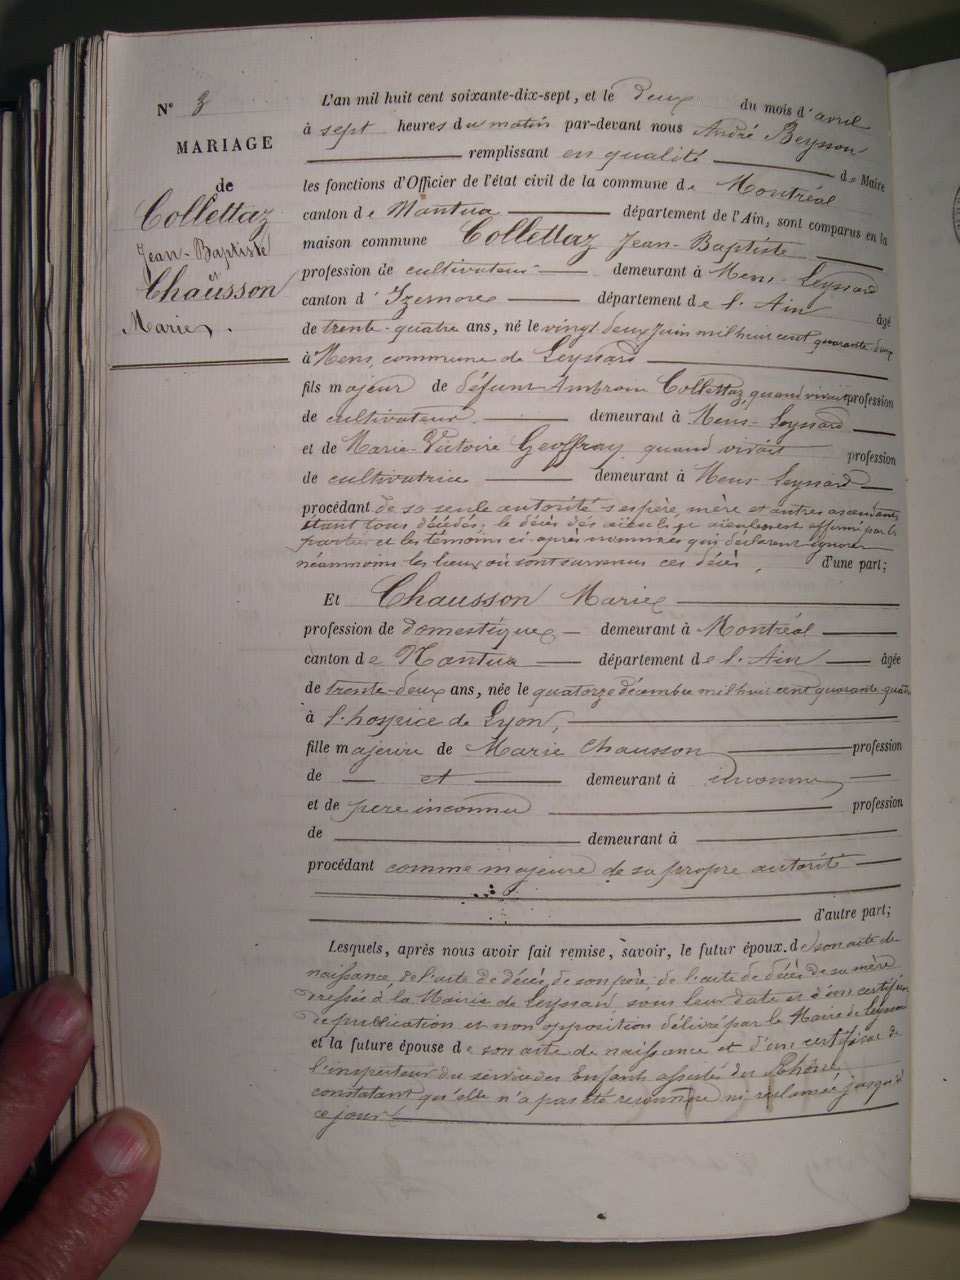 N° 3
MARIAGE
de
Collettaz
Jean-Baptiste
et
Chausson
Marie.
L'an mil huit cent soixante-dix-sept, et le deux du mois d'avril
à sept heures du matin par-devant nous André Beysson
remplissant en qualité de Maire
les fonctions d'Officier de l'état civil de la commune de Montréal
canton de Nantua département de l'Ain, sont comparus en la
maison commune Collettaz Jean-Baptiste
profession de cultivateur demeurant à Mens-Leyssard
canton d'Izernore département de l'Ain âgé
de trente-quatre ans, né le vingt deux Juin mil huit cent quarante deux
à Mens, commune de Leyssard
fils majeur de défunt Ambroise Collettaz, quand vivait profession
de cultivateur demeurant à Mens-Leyssard
et de Marie-Victoire Geoffray quand vivait profession
de cultivatrice demeurant à Mens-Leyssard
procédant de sa seule autorité ses père, mère et autres ascendants
étant tous décédés; le décès des aïeuls et aïeules est affirmé par les
parties et les témoins ci-après nommés qui déclarent ignorer
néanmoins les lieux où sont survenus ces décès, d'une part;
Et Chausson Marie
profession de domestique demeurant à Montréal
canton de Nantua département de l'Ain âgée
de trente-deux ans, née le quatorze décembre mil huit cent quarante quatre
à l'hospice de Lyon,
fille majeure de Marie Chausson profession
de et demeurant à inconnu
et de père inconnu profession
de demeurant à
procédant comme majeure de sa propre autorité
d'autre part;
Lesquels, après nous avoir fait remise, savoir, le futur époux. de son acte de
naissance, de l'acte de décès de son père, de l'acte de décès de sa mère
dressés à la Mairie de Leyssard, sous leur date et d'un certificat
de publication et non opposition délivré par le Maire de Leyssard
et la future épouse de son acte de naissance et d'un certificat de
l'inspecteur du service des Enfants assistés du Rhône
constatant qu'elle n'a pas été reconnue ni réclamée jusqu'à
ce jour